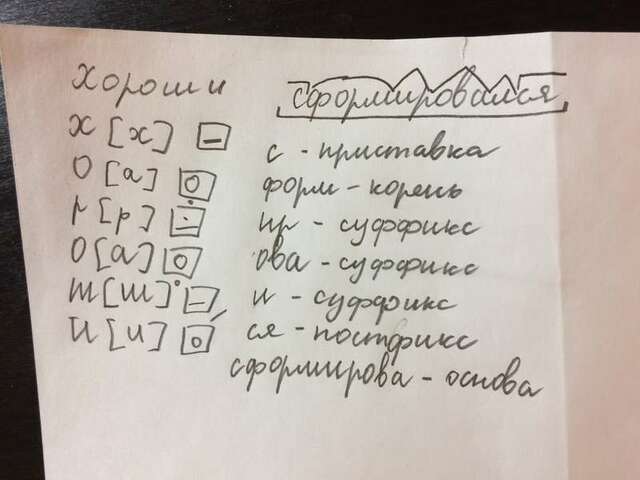 Хороши
х [х] -
о [а] о
р [р] ∸
о [а] о
ш [ш] -
и [и] о
сформировался
с - приставка
форм - корень
ир - суффикс
ова - суффикс
л - суффикс
ся - постфикс
сформирова - основа